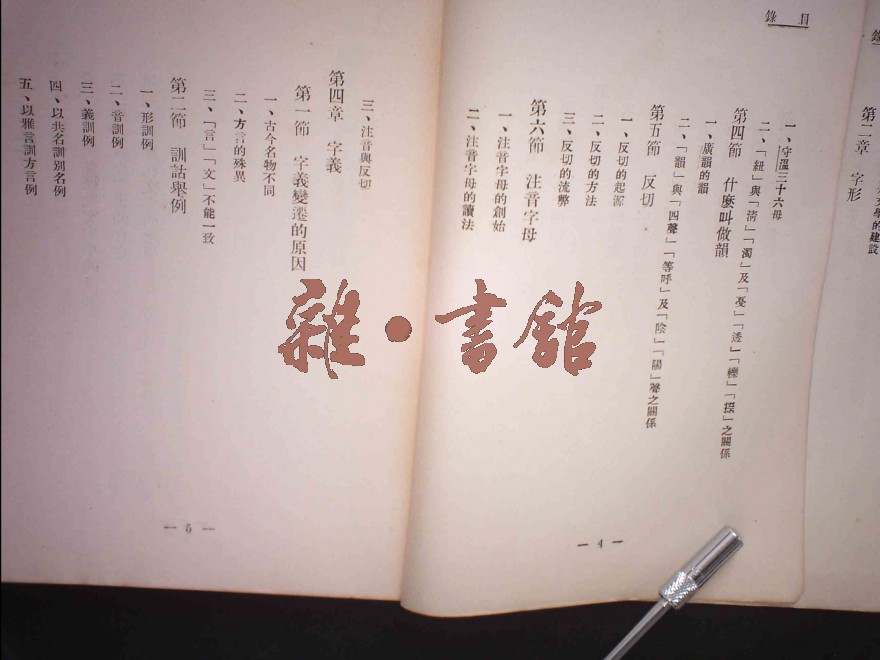 目錄
第二章 字形
一、守溫三十六母
二、「紐」與「清」「濁」及「戞」「透」「轢」「捺」之關係
第四節 什麼叫做韻
一、廣韻的韻
二、「韻」與「四聲」「等呼」及「陰」「陽」聲之關係
第五節 反切
一、反切的起源
二、反切的方法
三、反切的流弊
第六節 注音字母
一、注音字母的創始
二、注音字母的讀法
— 4 —
三、注音與反切
第四章 字義
第一節 字義變遷的原因
一、古今名物不同
二、方言的殊異
三、「言」「文」不能一致
第二節 訓詁舉例
一、形訓例
二、音訓例
三、義訓例
四、以共名訓別名例
五、以雅言訓方言例
— 5 —
雜·書館